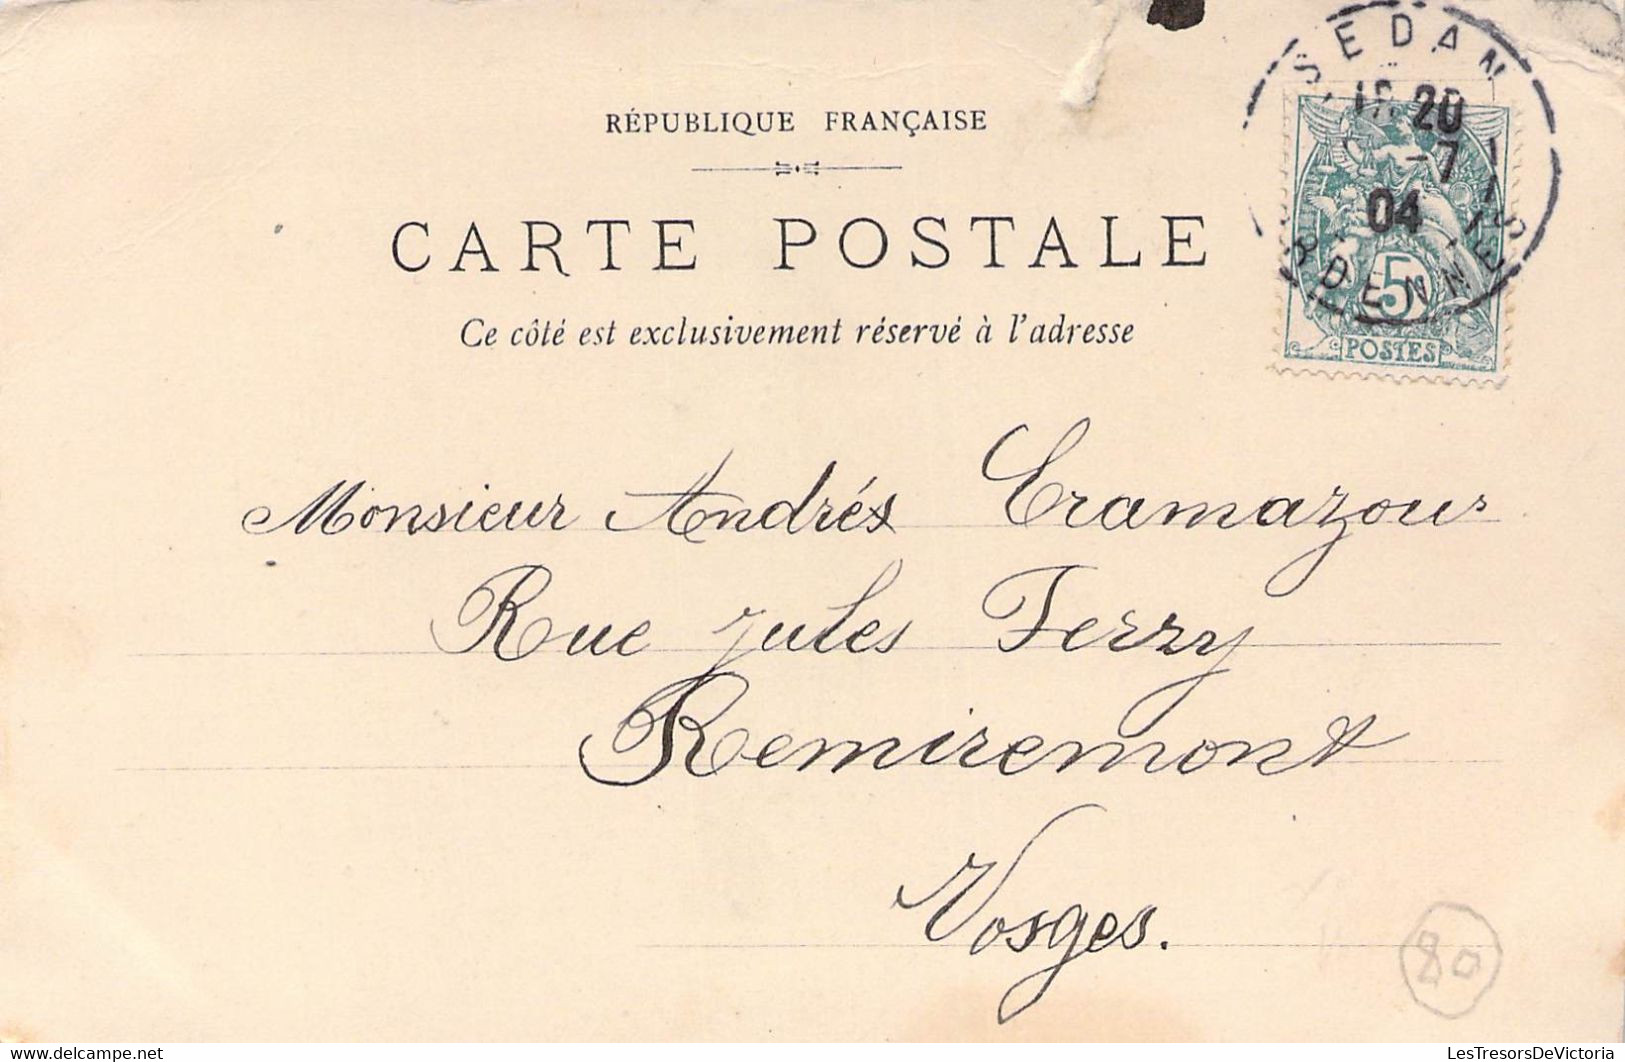 RÉPUBLIQUE FRANÇAISE
CARTE POSTALE
Ce côté est exclusivement réservé à l'adresse
SEDAN
20
-7
04
ARDENNES
5
POSTES
Monsieur André Cramazou
Rue Jules Ferry
Remiremont
Vosges.
80
delcampe.net
LesTresorsDeVictoria